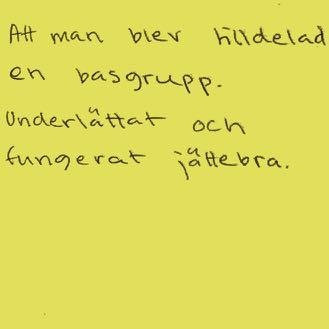 Att man blev tilldelad
en basgrupp.
Underlättat och
fungerat jättebra.